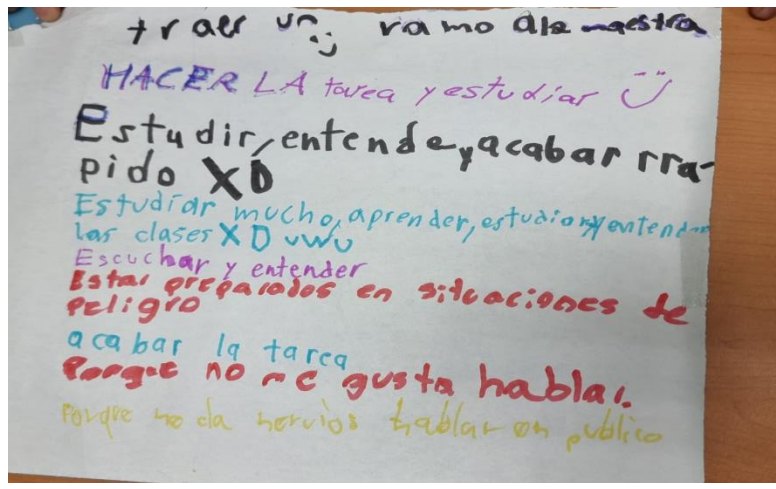 traer un :) ramo ala maestra
HACER LA tarea y estudiar :)
Estudir, entende, y acabar rra-
pido XD
Estudiar mucho, aprender, estudiar y entender
las clases XD uwu
Escuchar y entender
Estar preparados en situaciones de
peligro
acabar la tarea
Porque no me gusta hablar.
Porque no da nervios hablar en publico